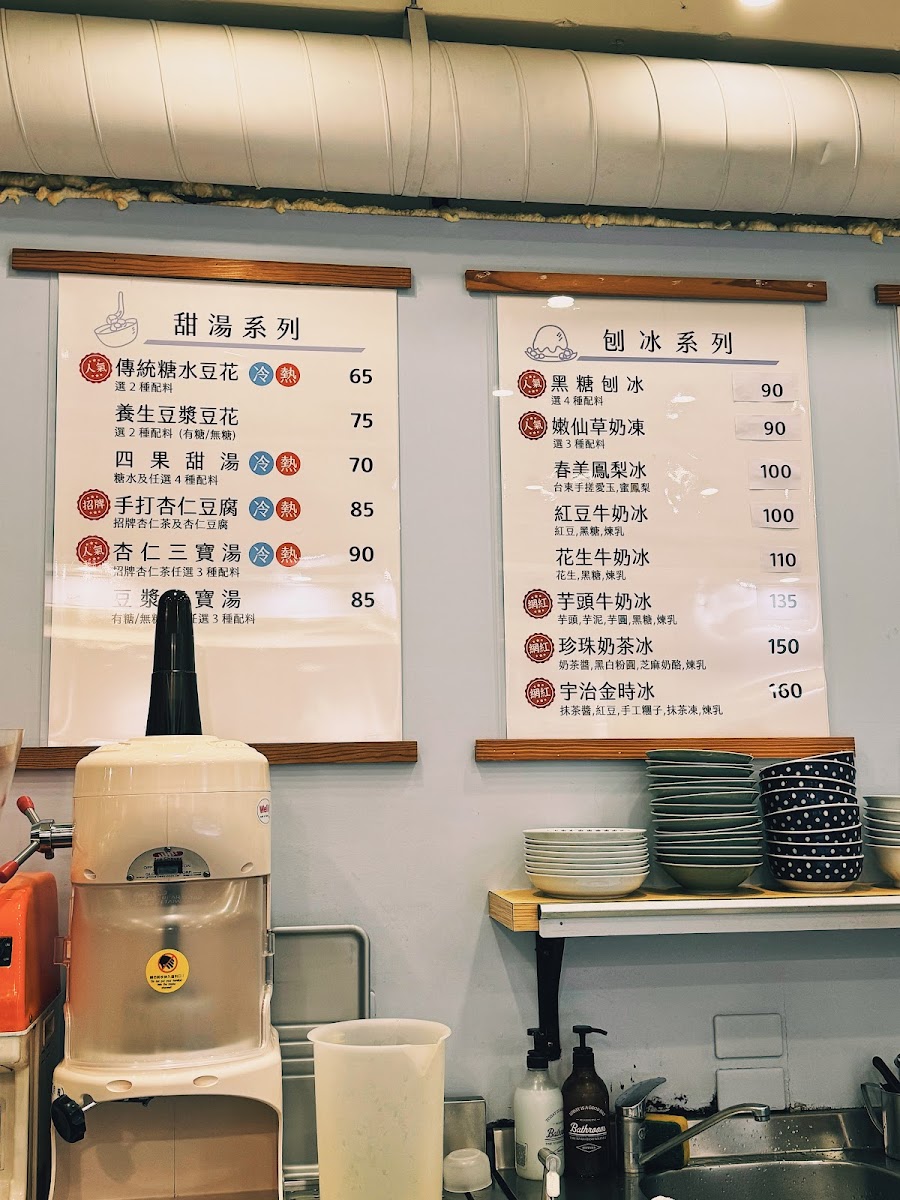 甜湯系列
人氣 傳統糖水豆花 冷 熱 65
選2種配料
養生豆漿豆花 75
選2種配料 (有糖/無糖)
四果甜湯 冷 熱 70
糖水及任選4種配料
招牌 手打杏仁豆腐 冷 熱 85
招牌杏仁茶及杏仁豆腐
人氣 杏仁三寶湯 冷 熱 90
招牌杏仁茶任選3種配料
豆漿 寶湯 85
有糖/無糖 任選3種配料
刨冰系列
人氣 黑糖刨冰 90
選4種配料
人氣 嫩仙草奶凍 90
選3種配料
春美鳳梨冰 100
台東手搓愛玉,蜜鳳梨
紅豆牛奶冰 100
紅豆,黑糖,煉乳
花生牛奶冰 110
花生,黑糖,煉乳
網紅 芋頭牛奶冰 135
芋頭,芋泥,芋圓,黑糖,煉乳
網紅 珍珠奶茶冰 150
奶茶醬,黑白粉圓,芝麻奶酪,煉乳
網紅 宇治金時冰 160
抹茶醬,紅豆,手工糰子,抹茶凍,煉乳
Bathroom